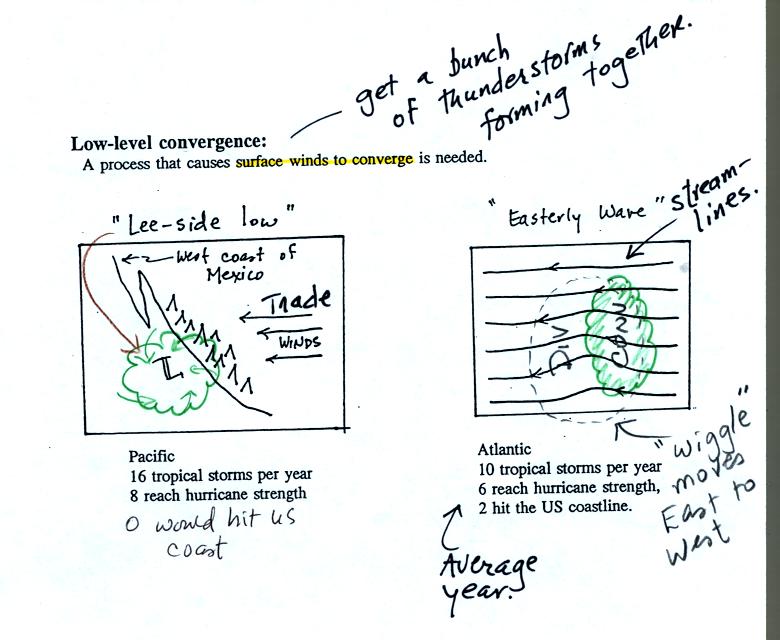 get a bunch
of thunderstorms
forming together.
Low-level convergence:
A process that causes surface winds to converge is needed.
"Lee-side low"
West coast of
Mexico
Trade
WINDS
L
"Easterly Wave"
stream-
lines.
DIV
CONV
Pacific
16 tropical storms per year
8 reach hurricane strength
0 would hit US
coast
Atlantic
10 tropical storms per year
6 reach hurricane strength,
2 hit the US coastline.
Average
year.
"wiggle"
moves
East to
West